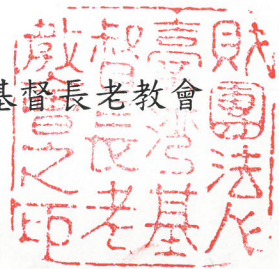 基督長老教會
財團法人
臺灣基
督長老
教會之印